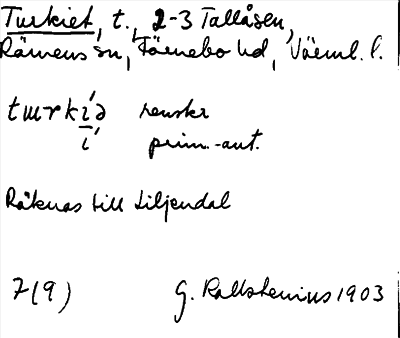 Turkiet, t., 2-3 Tallåsen,
Rämens sn, Färnebo hd, Värml. l.
tɯrkíə renskr
í prim.-ant.
Räknas till Liljendal
7(9) G. Kallstenius 1903